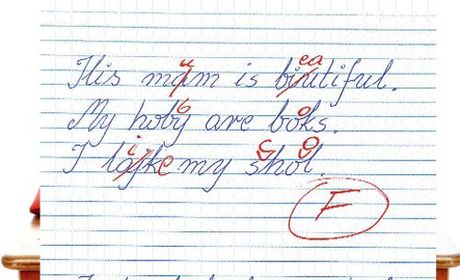 u ea
His mam is biutiful.
b o
My hoby are boks.
i c o
I lajke my shol.
F